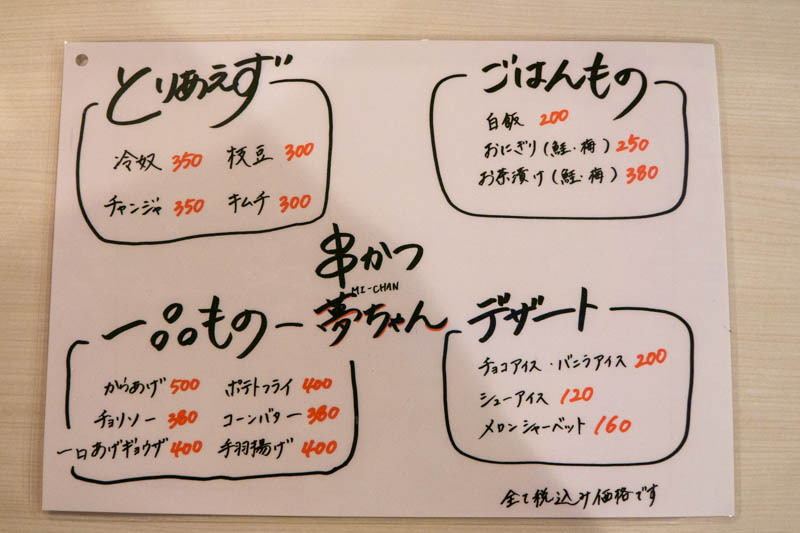 とりあえず
冷奴 350 枝豆 300
チャンジャ 350 キムチ 300
ごはんもの
白飯 200
おにぎり(鮭・梅) 250
お茶漬け(鮭・梅) 380
串かつ
MI-CHAN
夢ちゃん
一品もの
からあげ 500 ポテトフライ 400
チョリソー 380 コーンバター 380
一口あげギョウザ 400 手羽揚げ 400
デザート
チョコアイス・バニラアイス 200
シューアイス 120
メロンシャーベット 160
全て税込み価格です